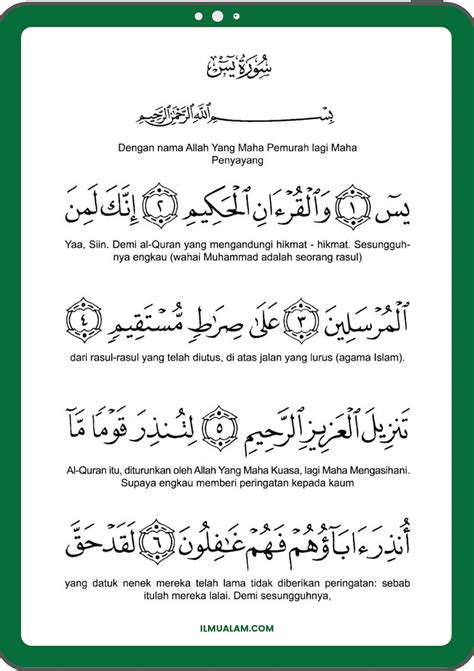 سُورَةُ يسٓ
بِسْمِ ٱللَّهِ ٱلرَّحْمَٰنِ ٱلرَّحِيمِ
Dengan nama Allah Yang Maha Pemurah lagi Maha
Penyayang
يسٓ ۝١ وَٱلْقُرْءَانِ ٱلْحَكِيمِ ۝٢ إِنَّكَ لَمِنَ
Yaa, Siin. Demi al-Quran yang mengandungi hikmat - hikmat. Sesungguh-
nya engkau (wahai Muhammad adalah seorang rasul)
ٱلْمُرْسَلِينَ ۝٣ عَلَىٰ صِرَٰطٍ مُّسْتَقِيمٍ ۝٤
dari rasul-rasul yang telah diutus, di atas jalan yang lurus (agama Islam).
تَنزِيلَ ٱلْعَزِيزِ ٱلرَّحِيمِ ۝٥ لِتُنذِرَ قَوْمًا مَّآ
Al-Quran itu, diturunkan oleh Allah Yang Maha Kuasa, lagi Maha Mengasihani.
Supaya engkau memberi peringatan kepada kaum
أُنذِرَ ءَابَآؤُهُمْ فَهُمْ غَٰفِلُونَ ۝٦ لَقَدْ حَقَّ
yang datuk nenek mereka telah lama tidak diberikan peringatan: sebab
itulah mereka lalai. Demi sesungguhnya,
ILMUALAM.COM